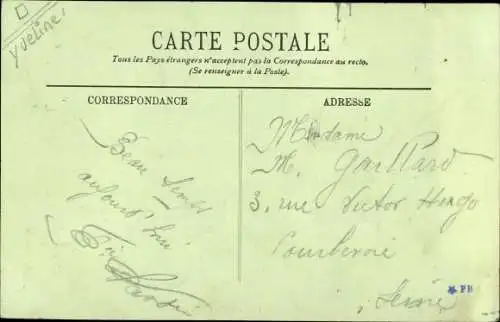 Yveline.
CARTE POSTALE
Tous les Pays étrangers n'acceptent pas la Correspondance au recto.
(Se renseigner à la Poste).
CORRESPONDANCE
Beau temps
aujourd'hui
ADRESSE
Madame
M. Gaillard
3, rue Victor Hugo
Courbevoie
Seine
PB